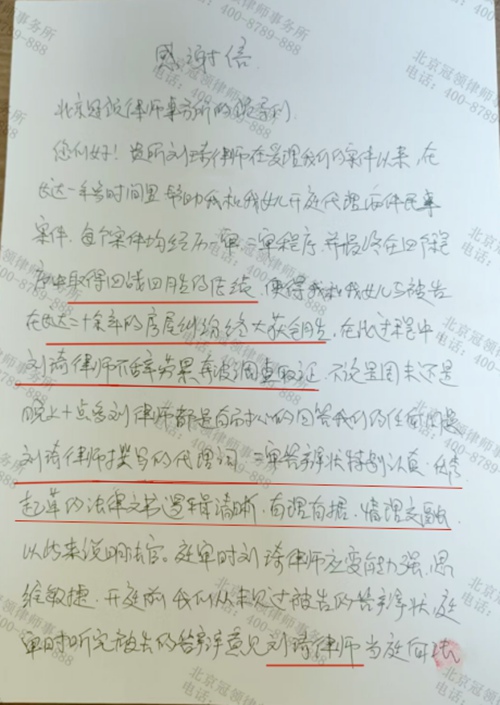 感谢信
北京冠领律师事务所的领导们
您们好！贵所刘琦律师在受理我们的案件以来，在
长达一年多时间里帮助我和我女儿开庭代理两件民事
案件，每个案件均经历一审、二审程序，并最终在四个程
序中取得四战四胜的佳绩，使得我和我女儿与被告
在长达二十余年的房屋纠纷终大获全胜，在此过程中
刘琦律师不舍辛劳果奔波调查取证，不论是周末还是
晚上十点多刘律师都是有耐心的回答我们的任何问题
刘琦律师撰写的代理词、二审答辩状特别认真、
起草的法律文书逻辑清晰、有理有据、情理交融
以此来说明法官。庭审时刘琦律师应变能力强，思
维敏捷，开庭前我们从未见过被告的答辩状，庭
审时听完被告的答辩意见刘琦律师当庭向法
北京冠领律师事务所
电话：400-8789-888